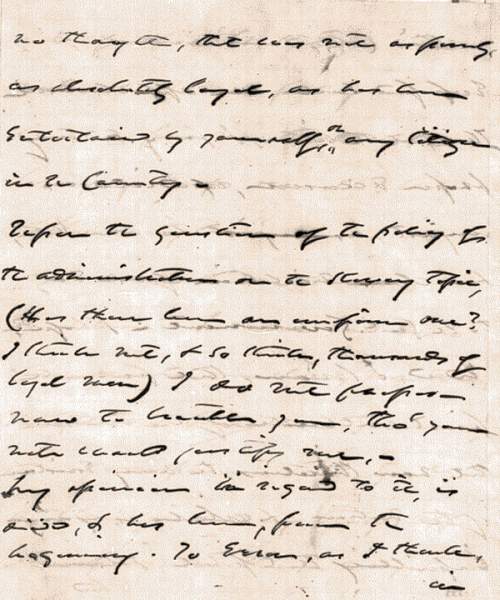 no thought, that was not as purely,
as absolutely loyal, as has been
entertained by yourself, or any Citizen
in the Country.
Upon the question of the policy of
the administration on the Slavery topic,
(Has there been an uniform one?
I think not, & so think, thousands of
loyal men) I do not propose
now to trouble you, tho' your
note would justify me, -
My opinion in regard to it, is
& has been, from the
beginning. To Error, as I think,
in